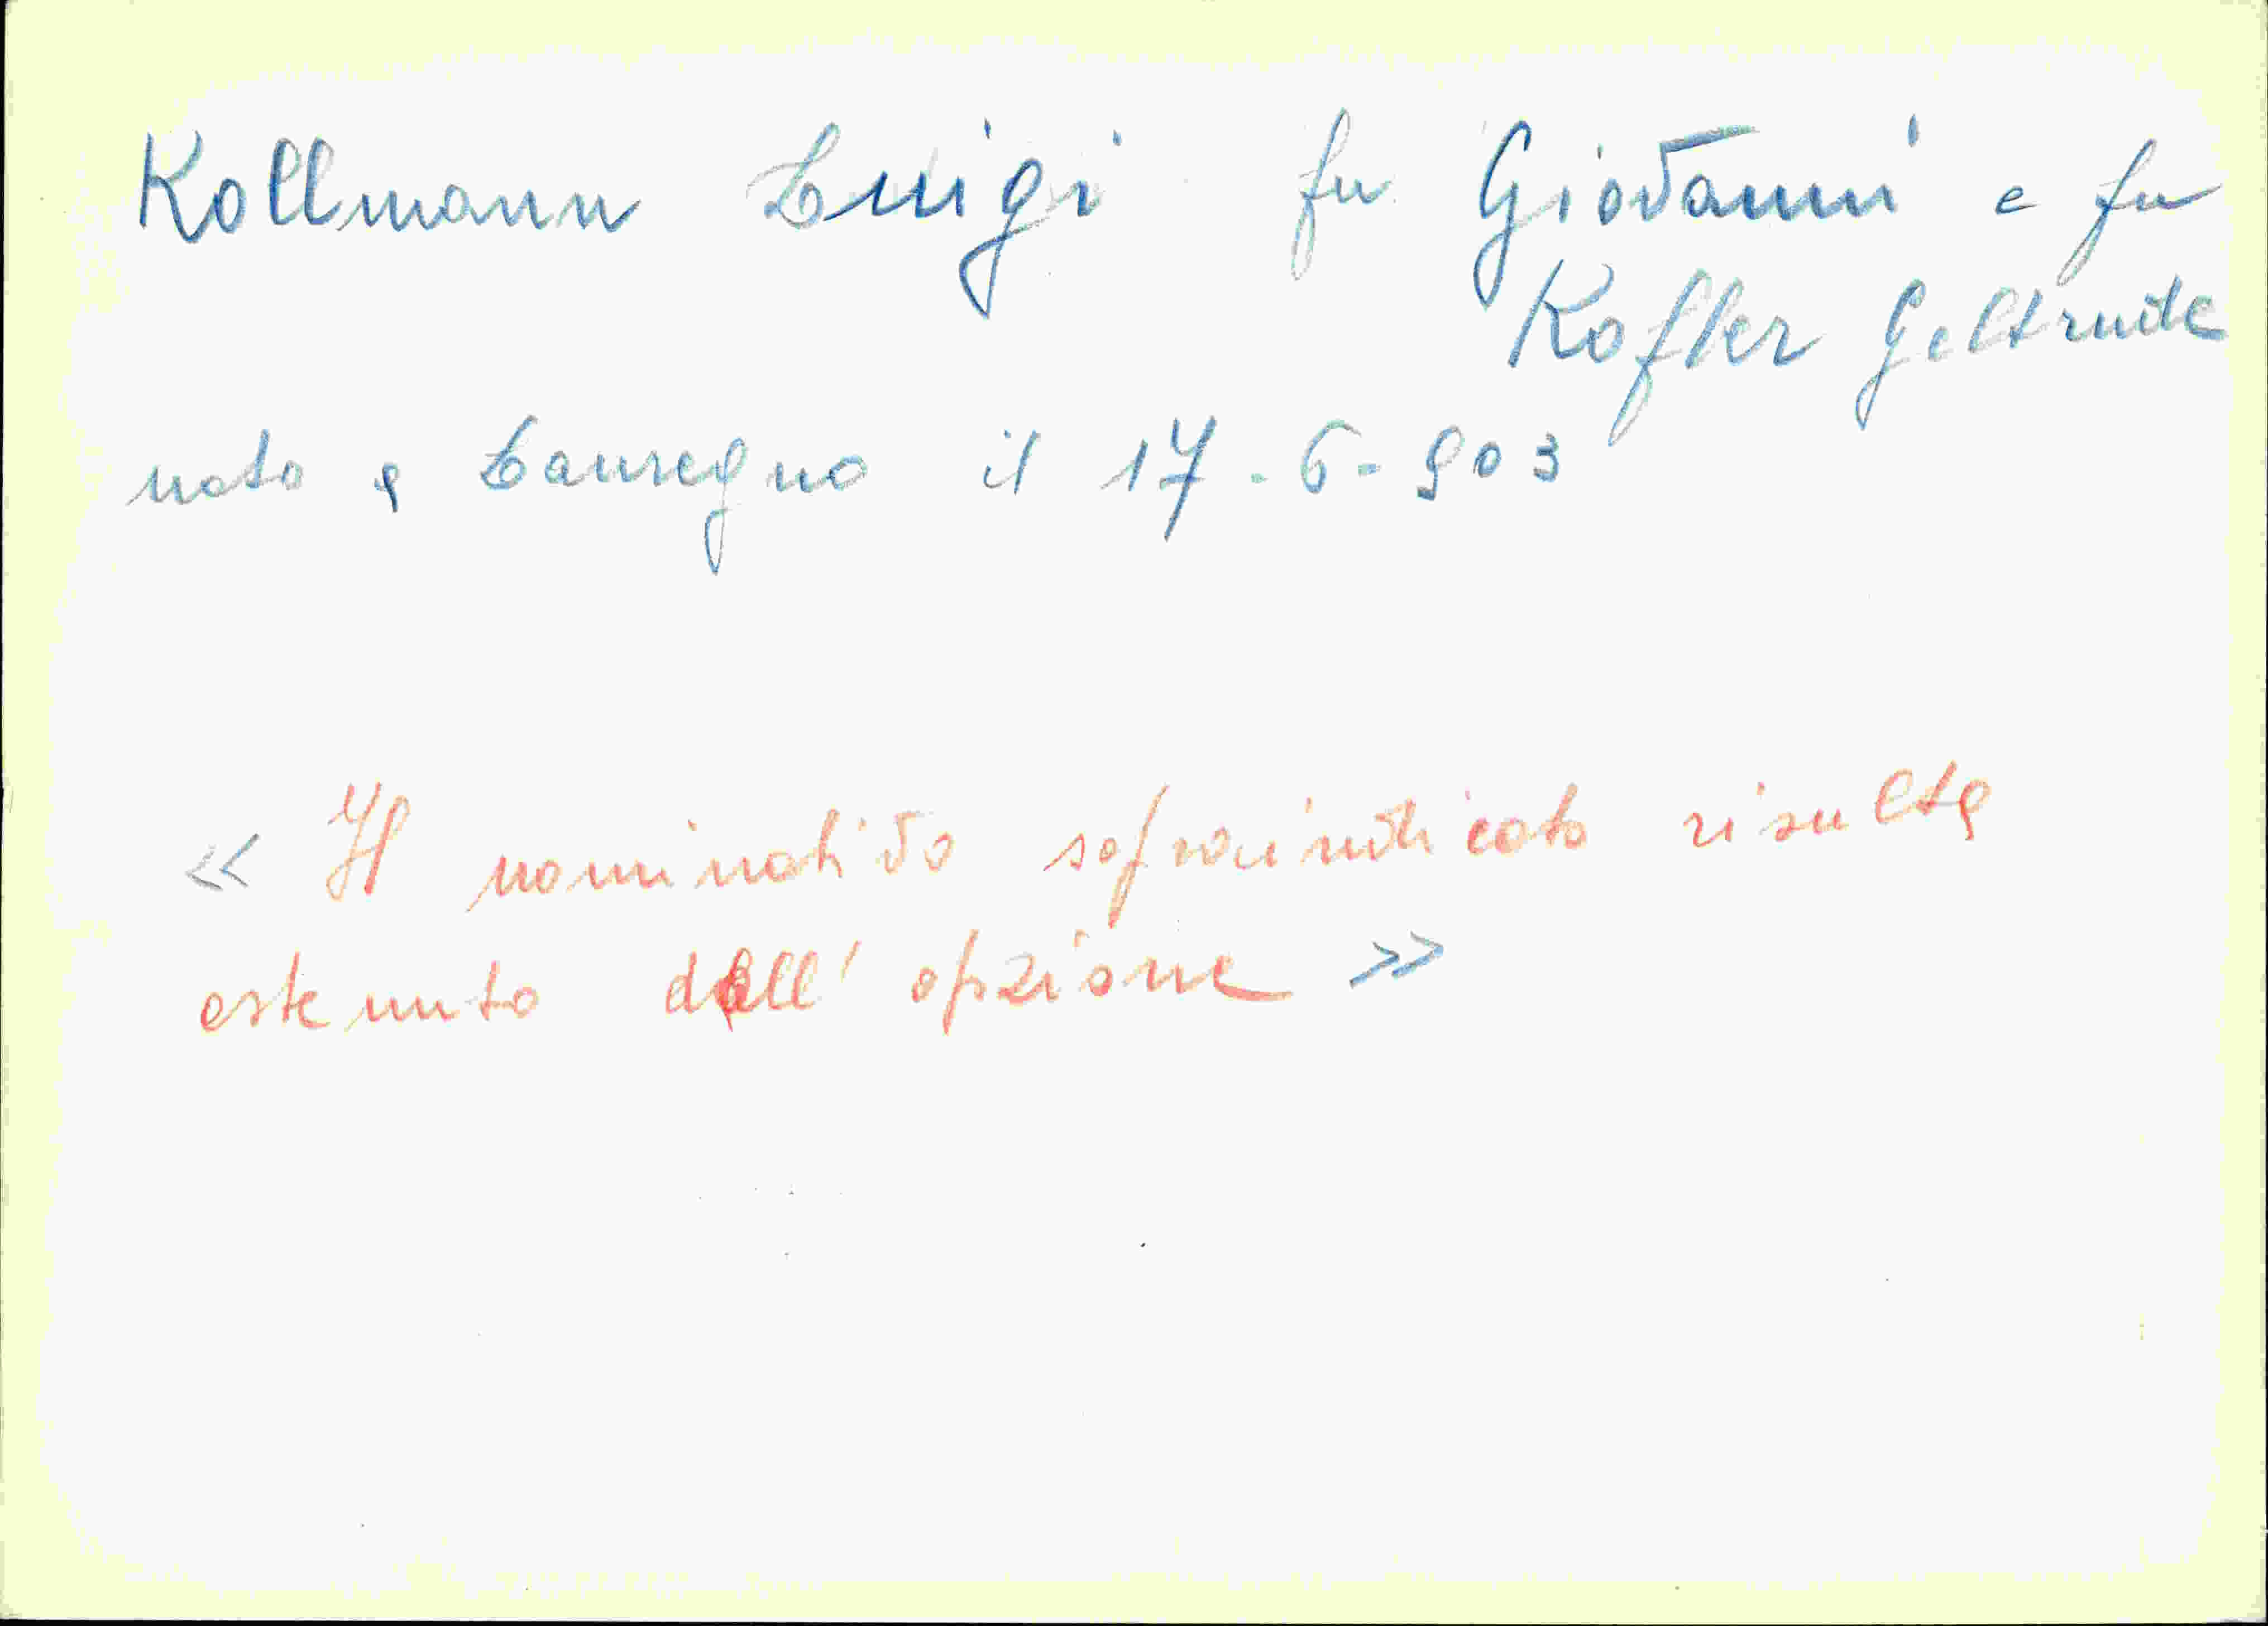 Kollmann Luigi fu Giovanni e fu
Kofler Geltrude
nato a Lauregno il 17-6-903
<< Il nominativo sopraindicato risulta
estenuto dall' opzione >>